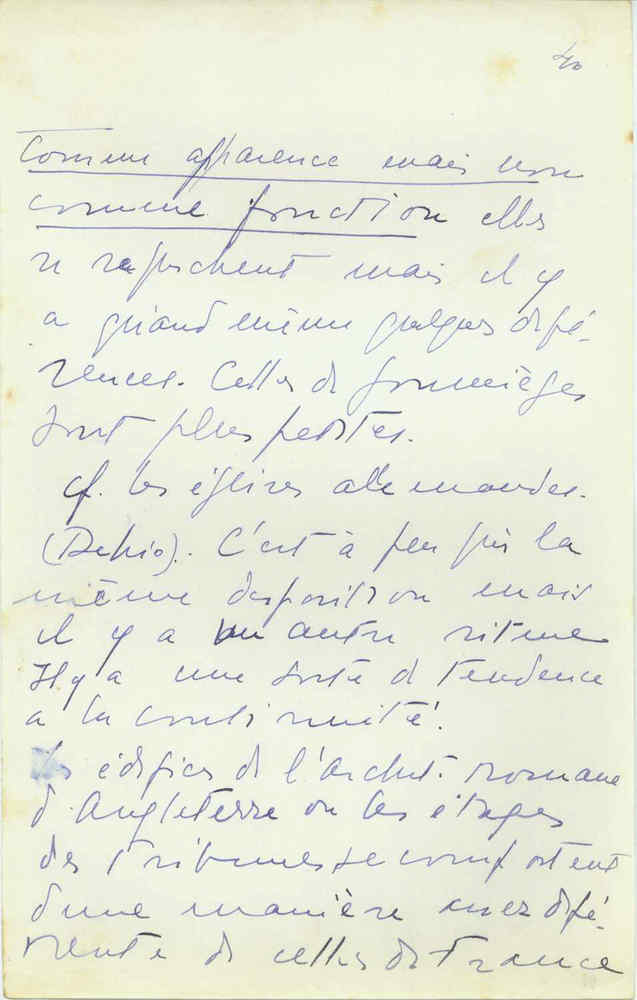 40
Comme apparence mais non
comme fonction elles
se raprochent mais il y
a quand même quelques difé-
rences. Celles de Jumièges
sont plus petites.
cf. les églises allemandes.
(Dehio). C'est à peu près la
même disposition mais
il y a un autre ritme
Il y a une sorte de tendence
a la continuité.
Les édifices de l'archit. romane
d'Angleterre ou les étages
des tribunes se comportent
d'une manière assez difé-
rente de celles de France